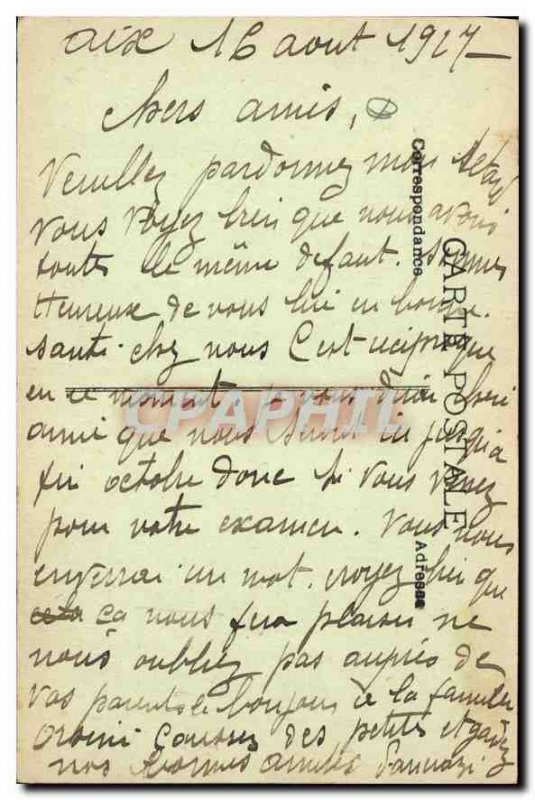 aix 16 aout 1927
chers amis,
Veuillez pardonnez mon retard
vous voyez bien que nous avons
toutes le même defaut. Sommes
Heureuse de vous lire en bonne
santé. chez nous C'est reciproque
en ce moment je vous dirai
amie que nous ici jusqu'a
fin octobre donc si vous venez
pour votre examen. Vous nous
enverrai un mot. croyez bien que
ça nous fera plaisir ne
nous oubliez pas auprès de
vos parents le bonjour de la famille
des petites et gardez
nos bonnes amitiés
Correspondance
CARTE POSTALE
Adresse
CPAPHIL